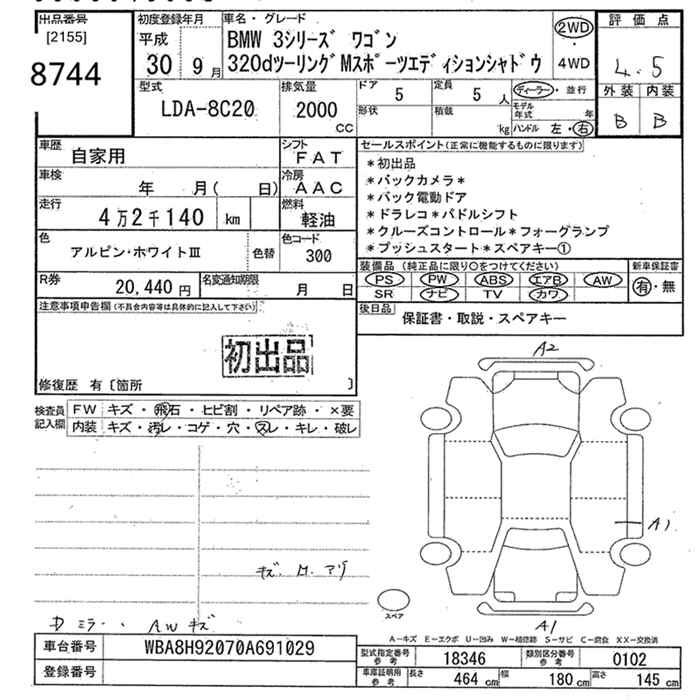 出品番号 初度登録年月 車名・グレード 評価点
[2155] 平成 BMW 3シリーズ ワゴン 2WD
8744 30 9月 320dツーリングMスポーツエディションシャドウ 4WD 4.5
型式 排気量 ドア 定員 ディーラー・並行 外装 内装
LDA-8C20 2000 CC 5 5人 モデル年式 年 B B
形状 積載 kg ハンドル 左・右
車歴 自家用 シフト FAT セールスポイント(正常に機能するものに限ります)
車検 年 月( 日) 冷房 AAC
走行 4万2千140 km 燃料 軽油
*初出品
*バックカメラ*
*バック電動ドア
*ドラレコ*パドルシフト
*クルーズコントロール*フォーグランプ
*プッシュスタート*スペアキー①
色 アルピン・ホワイトⅢ 色替 色コード 300
装備品(純正品に限り○をつけてください) 新車保証書
PS PW ABS エアB AW 有・無
SR ナビ TV カワ
R券 20,440円 名変通知期限 月 日
後日品 保証書・取説・スペアキー
注意事項申告欄(不具合内容等は具体的に記入して下さい)
初出品
修復歴 有〔箇所 〕
検査員記入欄 FW キズ・飛石・ヒビ割・リペア跡・×要
内装 キズ・汚レ・コゲ・穴・スレ・キレ・破レ
A2
A1
キズ.凹.アリ
スペア
A1
Dミラー. AWキズ
A-キズ E-エクボ U-凹み W-補修跡 S-サビ C-腐食 XX-交換済
車台番号 WBA8H92070A691029
型式指定番号 参考 18346 類別区分番号 参考 0102
登録番号
車庫証明用 参考 長さ 464 cm 幅 180 cm 高さ 145 cm